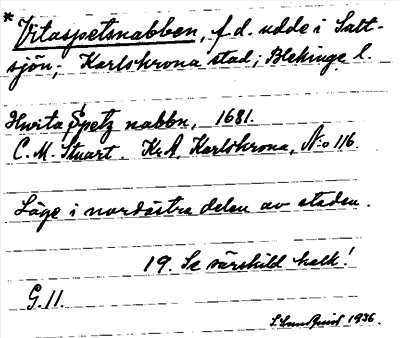 * Vitaspetsnabben, f d. udde i Salt-
sjön; Karlskrona stad; Blekinge l.
Hwita Spetz nabbn, 1681.
C. M. Stuart. KrA, Karlskrona, N:o 116.
Läge i nordöstra delen av staden.
19. Se särskild kalk!
G. 11.
S Lundquist 1936.